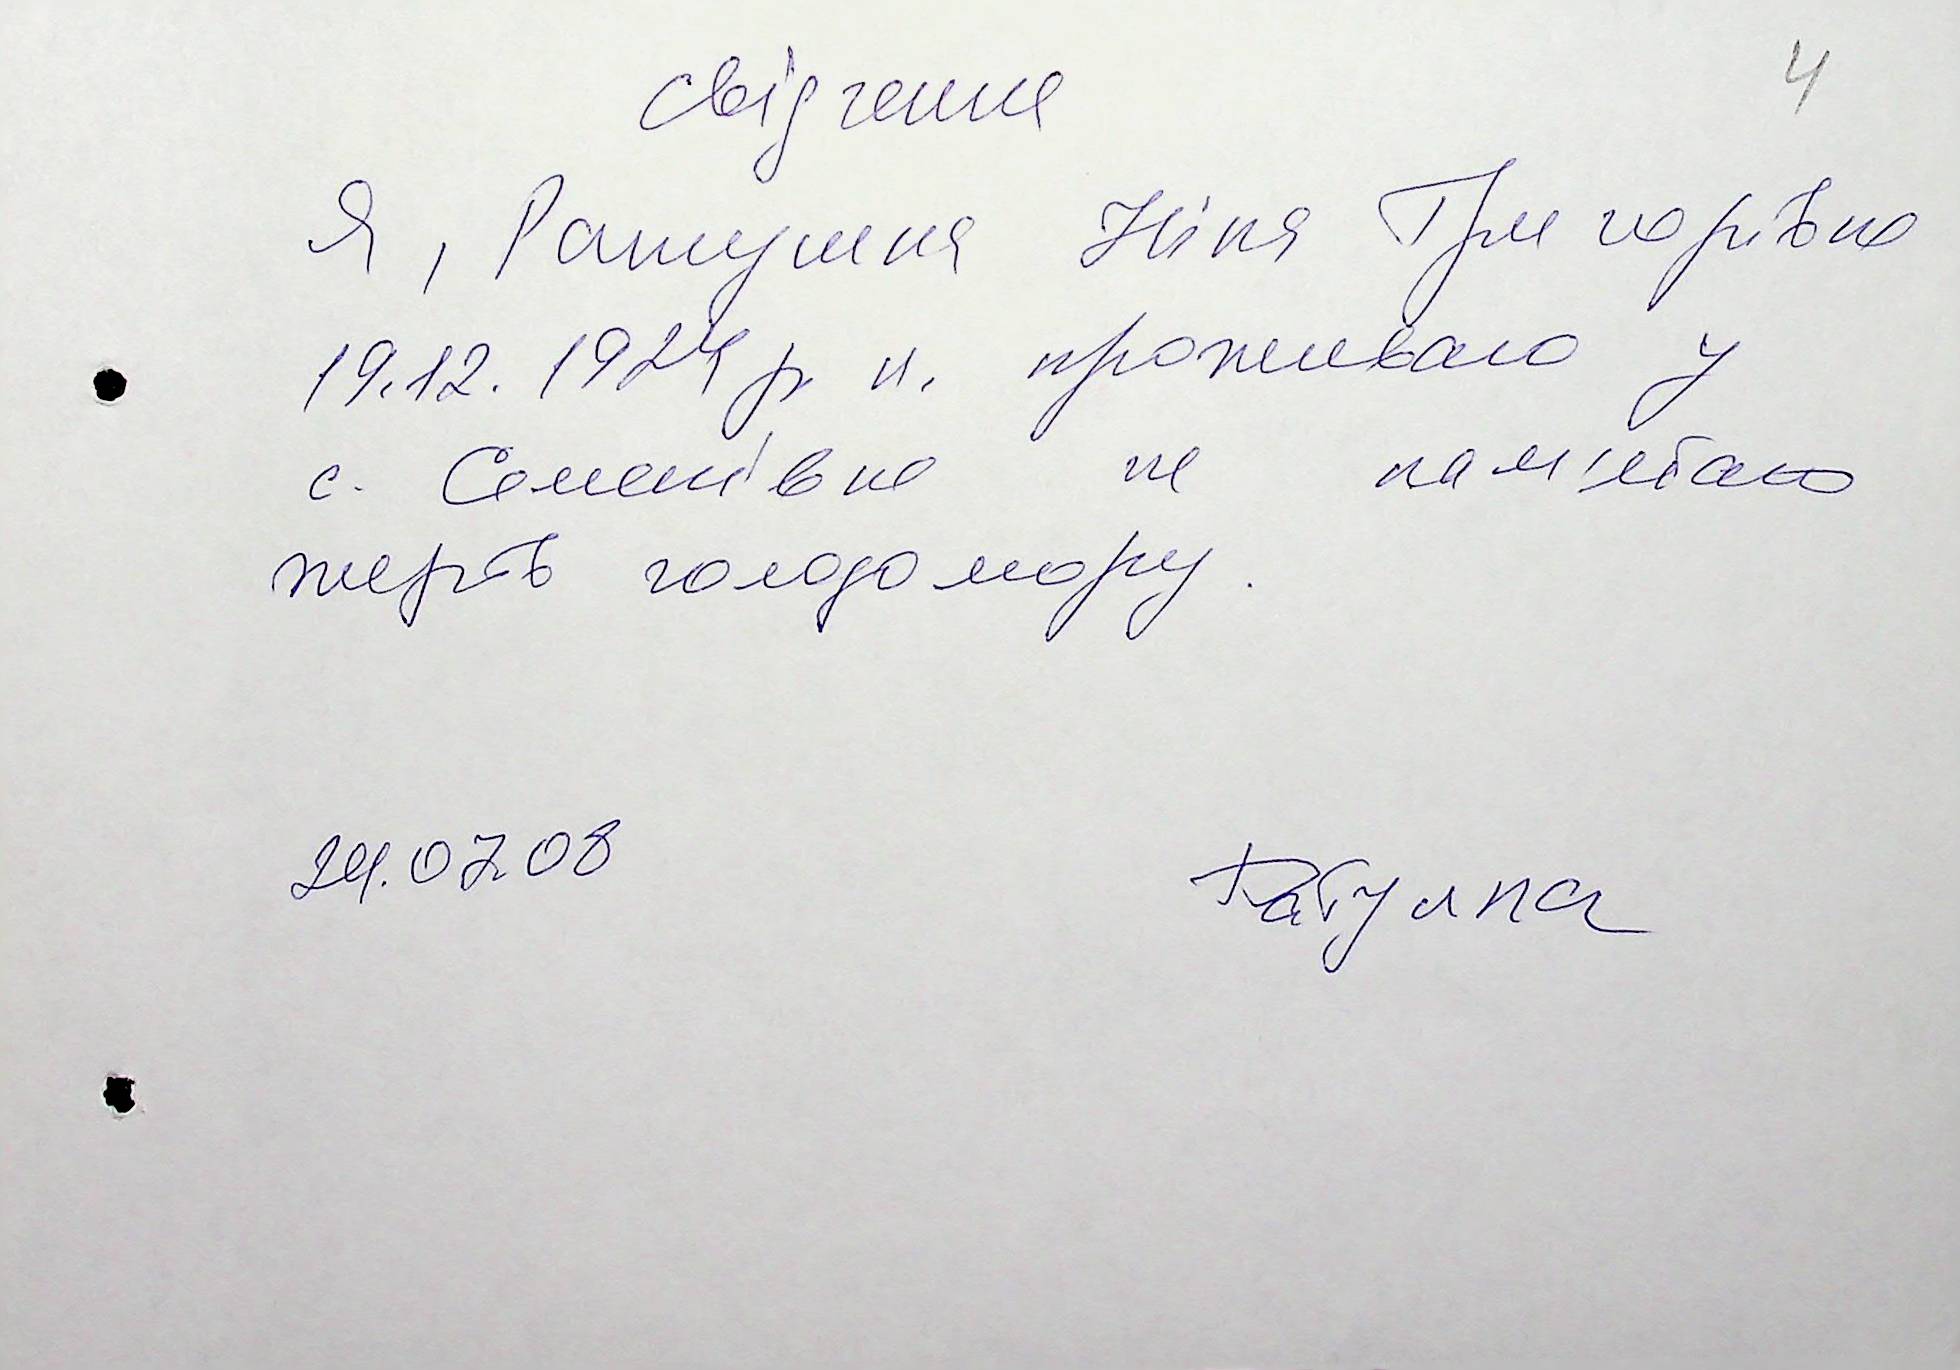 4
свідчення
Я, Ратушна Ніна Григорівна
19.12.1924 р. н. проживаю у
с. Семенівка не пам'ятаю
жертв голодомору.
24.07.08